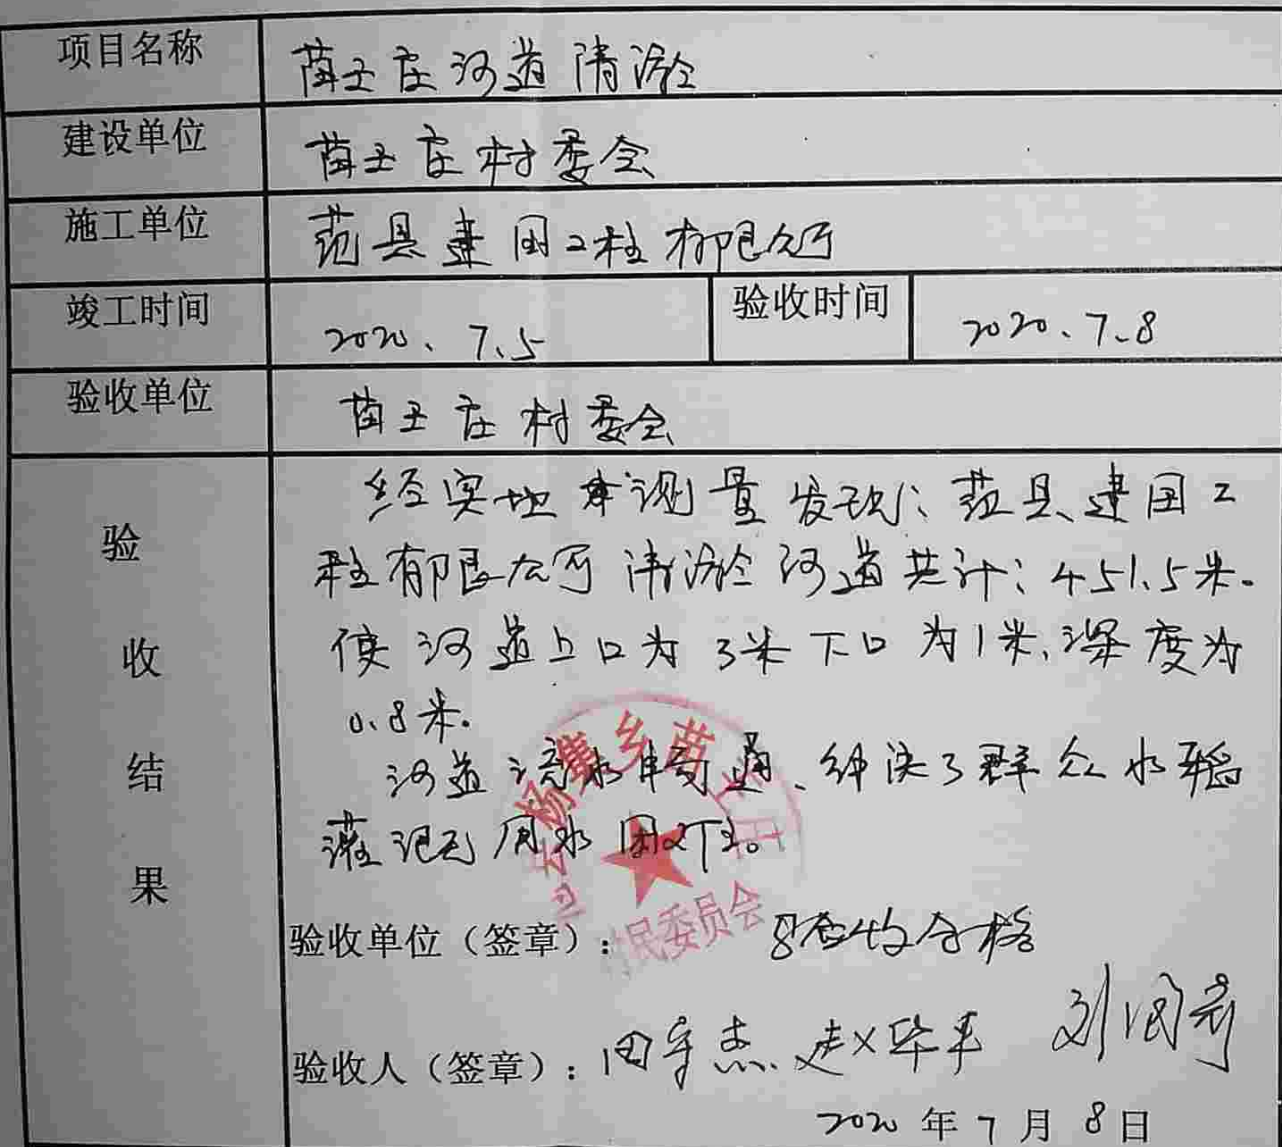 项目名称 苗王庄河道清淤
建设单位 苗王庄村委会
施工单位 范县建国工程有限公司
竣工时间 2020.7.5 验收时间 2020.7.8
验收单位 苗王庄村委会
验收结果
经实地测量发现:范县建国工
程有限公司清淤河道共计:451.5米.
使河道上口为3米下口为1米,深度为
0.8米.
河道流水畅通、解决了群众水稻
灌溉用水困难。
杨集乡苗王庄
村民委员会
验收单位(签章): 验收合格
验收人(签章): 田宇杰 赵华平
2020年7月8日